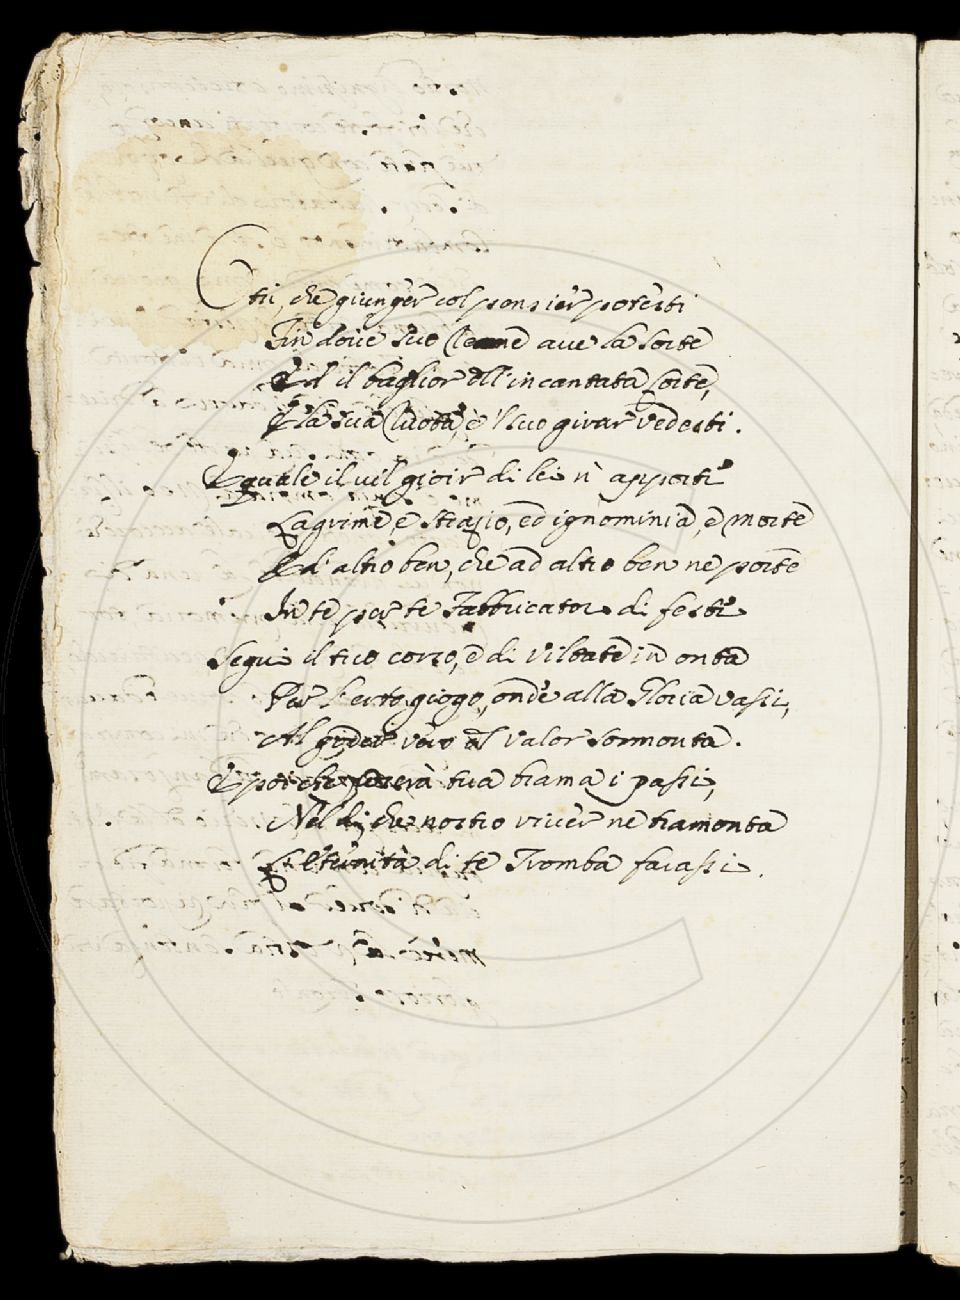 O tù, che giunger col pensier potesti
Fin dove suo Reame ave la sorte
Ed il baglior dll' incantata Corte,
E la sua Ruota, e 'l suo girar vedesti.
E quale il vil gioir di lei n' appresti
Lagrime, e strazio, ed ignominia, e morte
Ed' altro ben, che ad altro ben ne porte
In te per te Fabbricator di festi
Segui il tuo corso, e di viltate in onta
Per l' erto giogo, onde alla Gloria vassi,
Al goder vero al valor sormonta.
E poi che tua brama i passi,
Nel di che nostro viver ne tramonta
L' Eternità di te Tromba farassi.